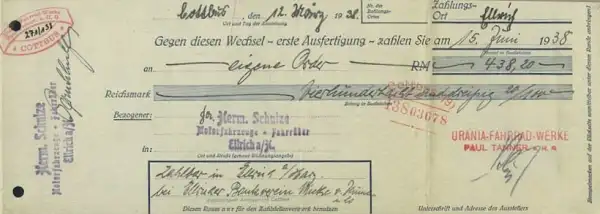 Cottbus, den 12. März 1938.
Ort und Tag der Ausstellung
Nr. des Zahlungs-Ortes
Zahlungs-Ort
Ellrich
COTTBUS
Gegen diesen Wechsel - erste Ausfertigung - zahlen Sie am 15. Juni 1938
Monat in Buchstaben
an eigene Order RM 438,20
Betrag in Ziffern
Reichsmark Vierhundertachtunddreißig 20/100
Betrag in Buchstaben
13803078
Bezogener:
Fa. Herm. Schulze
Motorfahrzeuge + Fahrräder
Ellrich/H.
in:
Ort und Straße (genaue Wohnungsangabe)
URANIA-FAHRRAD-WERKE
PAUL TANNER
Zahlbar in Ellrich a/Harz
bei Ellricher Bankverein
Diesen Raum nur für den Zahlstellenvermerk benutzen
Unterschrift und Adresse des Ausstellers
Herm. Schulze
Motorfahrzeuge + Fahrräder
Ellrich/H.